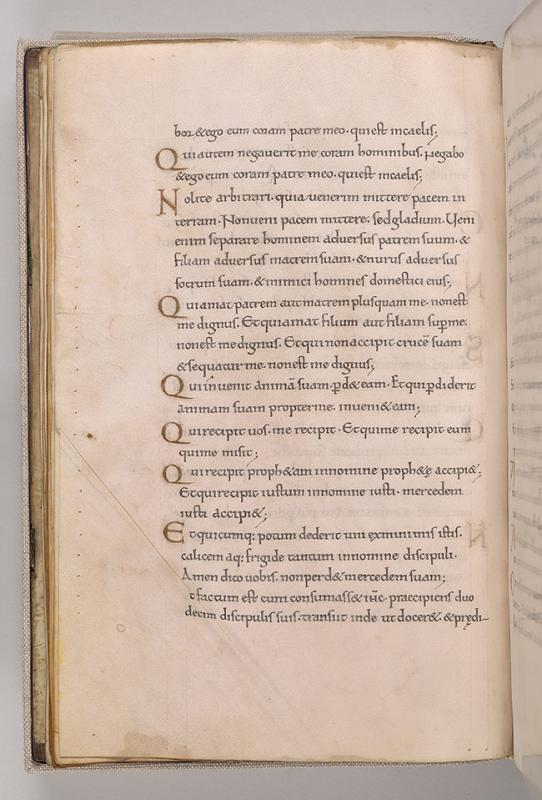 bor & ego eum coram patre meo. qui est in caelis;
Qui autem negaverit me coram hominibus. negabo
& ego eum coram patre meo. qui est in caelis;
Nolite arbitrari. quia venerim mittere pacem in
terram. Non veni pacem mittere. sed gladium. Veni
enim separare hominem adversus patrem suum. &
filiam adversus matrem suam. & nurus adversus
socrum suam. & inimici homines domestici eius;
Qui amat patrem aut matrem plus quam me. non est
me dignus. Et qui amat filium aut filiam sup me.
non est me dignus. Et qui non accipit crucē suam
& sequatur me. non est me dignus;
Qui invenit animā suam. pd&eam. Et qui pdiderit
animam suam propter me. inveni&eam;
Qui recipit uos. me recipit. Et qui me recipit eum
qui me misit;
Qui recipit proph&am in nomine proph&ę accipi&;
Et qui recipit iustum in nomine iusti. mercedem
iusti accipi&;
Et quicumq; potum dederit uni ex minimis istis.
calicem aq; frigide tantum in nomine discipuli.
Amen dico uobis. non perd& mercedem suam;
t factum est cum consumass& ihc. praecipiens duo
decim discipulis suis. transiit inde ut docer& & prędi-